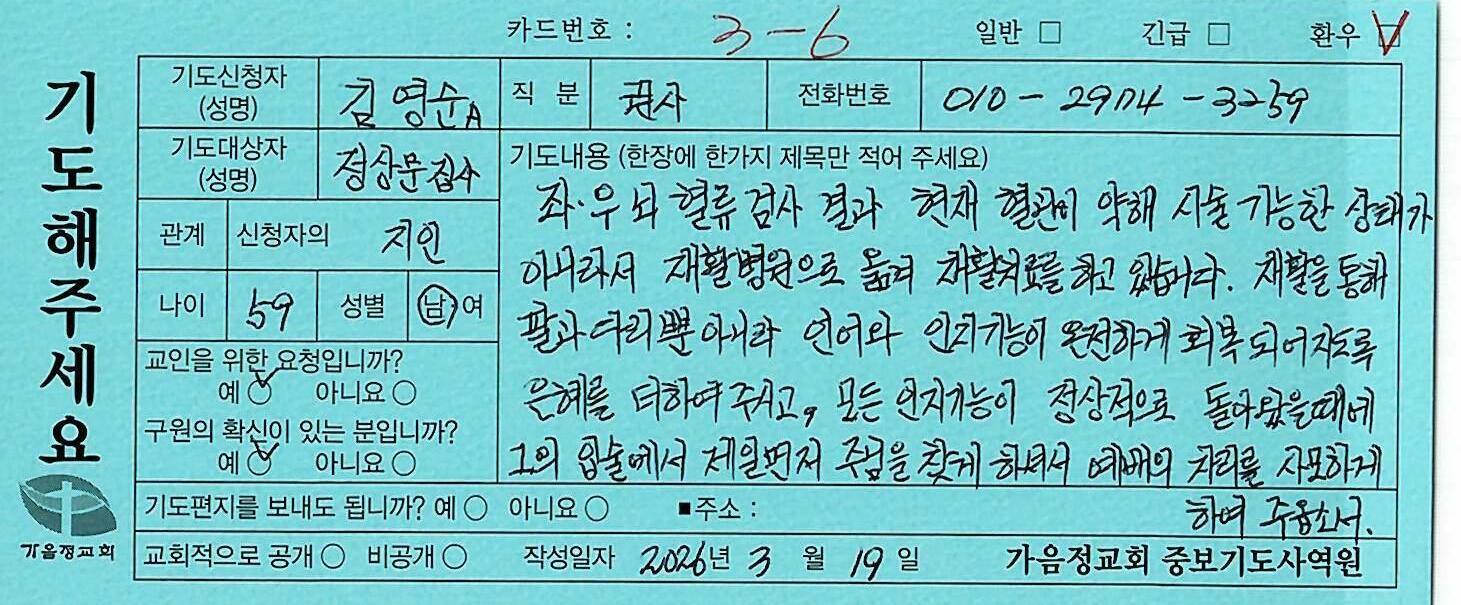 카드번호 : 3-6 일반 □ 긴급 □ 환우 ☑
기도해주세요
기도신청자 (성명) 김영순A 직 분 권사 전화번호 010-2974-3259
기도대상자 (성명) 정상문집사
관계 신청자의 지인
나이 59 성별 남·여
교인을 위한 요청입니까?
예 ○ 아니요 ○
구원의 확신이 있는 분입니까?
예 ○ 아니요 ○
기도내용 (한장에 한가지 제목만 적어 주세요)
좌·우 뇌 혈류검사 결과 현재 혈관이 약해 시술 가능한 상태가
아니라서 재활병원으로 옮겨 재활치료를 하고 있습니다. 재활을 통해
팔과 다리뿐 아니라 언어와 인지기능이 온전하게 회복되어지도록
은혜를 더하여 주시고, 모든 인지기능이 정상적으로 돌아왔을때에
그의 입술에서 제일먼저 주님을 찾게 하녀서 예배의 자리를 사모하게
하여 주옵소서.
기도편지를 보내도 됩니까? 예 ○ 아니요 ○ ■주소 :
교회적으로 공개 ○ 비공개 ○ 작성일자 2026년 3 월 19 일 가음정교회 중보기도사역원
가음정교회